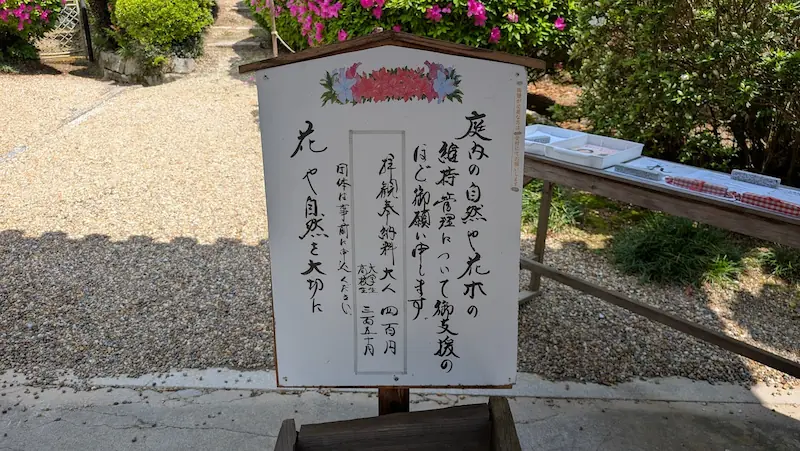 庭内の自然や花木の
維持管理について御支援の
ほど御願い申します。
拝観奉納料 大人 四百円
大学生
高校生 三百五十円
団体は事前に申込ください。
花や自然を大切に